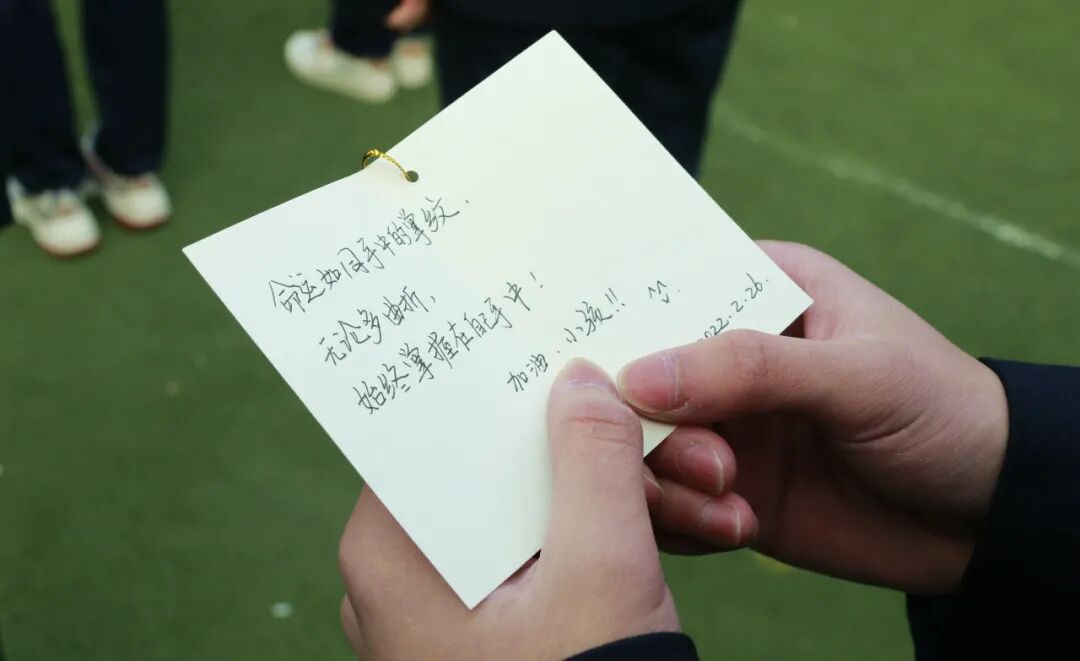 命运如同手中的掌纹，
无论多曲折，
始终掌握在自己手中！
加油，小孩!!
022.2.26.